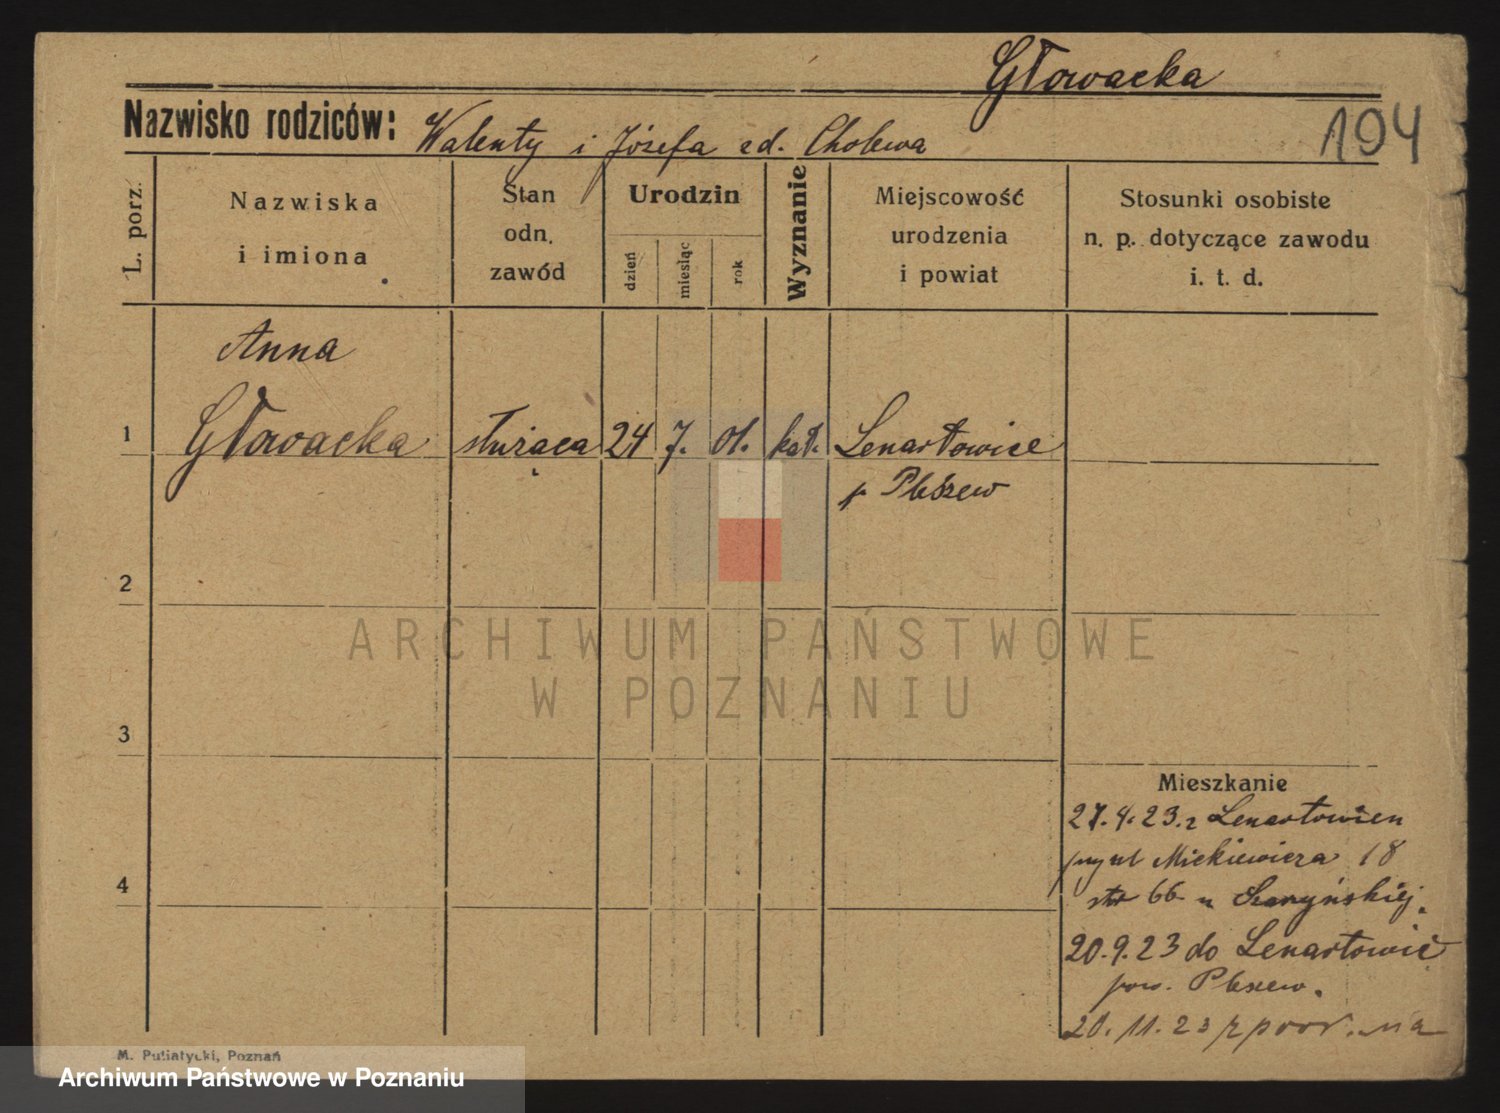 Głowacka
194
Nazwisko rodziców: Walenty i Józefa zd. Cholewa
L. porz.
Nazwiska
i imiona
Stan
odn.
zawód
Urodzin
dzień
miesiąc
rok
Wyznanie
Miejscowość
urodzenia
i powiat
Stosunki osobiste
n. p. dotyczące zawodu
i. t. d.
Anna
1 Głowacka służąca 24 7. 01. kat. Lenartowice
p Pleszew
2
ARCHIWUM PAŃSTWOWE
W POZNANIU
3
Mieszkanie
27.4.23. z Lenartowien
ul Mickiewicza 18
66 u
4
20.9.23 do Lenartowic
pow. Pleszew.
20. 11. 23 z na
M. Putiatycki, Poznań
Archiwum Państwowe w Poznaniu